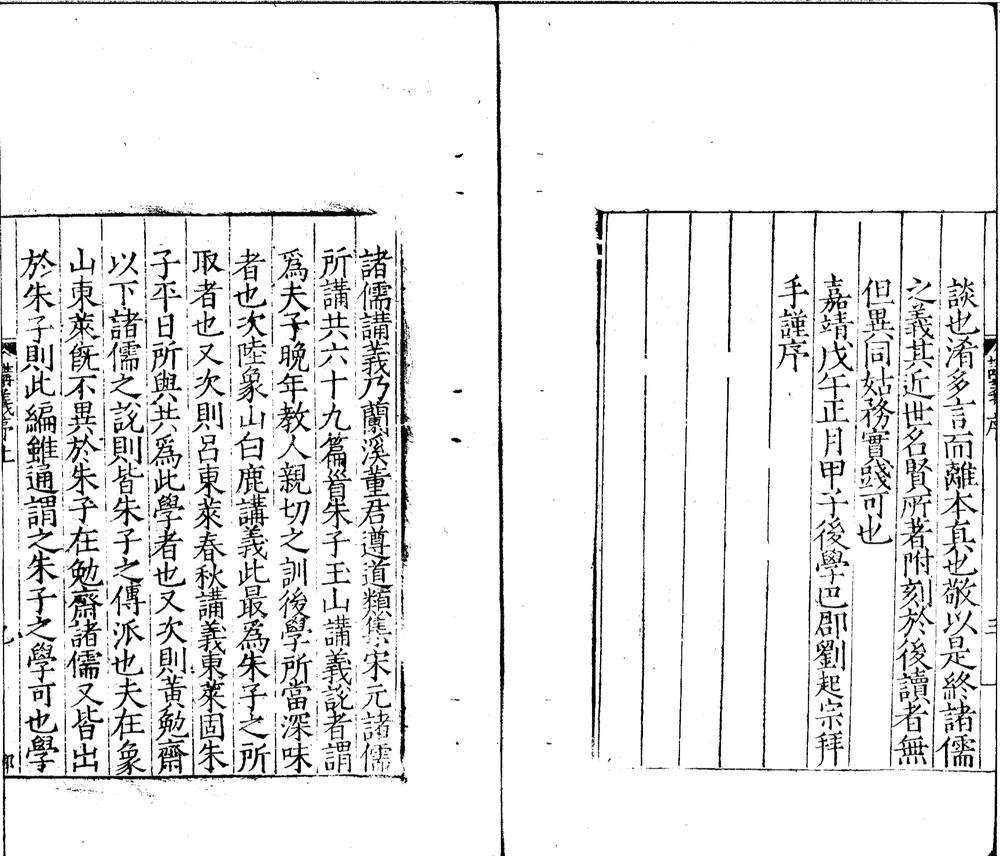 談也淆多言而離本真也敬以是終諸儒
之義其近世名賢所著附刻於後讀者無
但異同姑務實踐可也
嘉靖戊午正月甲子後學巴郡劉起宗拜
手謹序
諸儒講義乃蘭溪董君遵道類集宋元諸儒
所講共六十九篇首朱子玉山講義說者謂
爲夫子晚年教人親切之訓後學所當深味
者也次陸象山白鹿講義此最爲朱子之所
取者也又次則呂東萊春秋講義東萊固朱
子平日所與共爲此學者也又次則黃勉齋
以下諸儒之說則皆朱子之傳派也夫在象
山東萊旣不異於朱子在勉齋諸儒又皆出
於朱子則此編雖通謂之朱子之學可也學
講義序